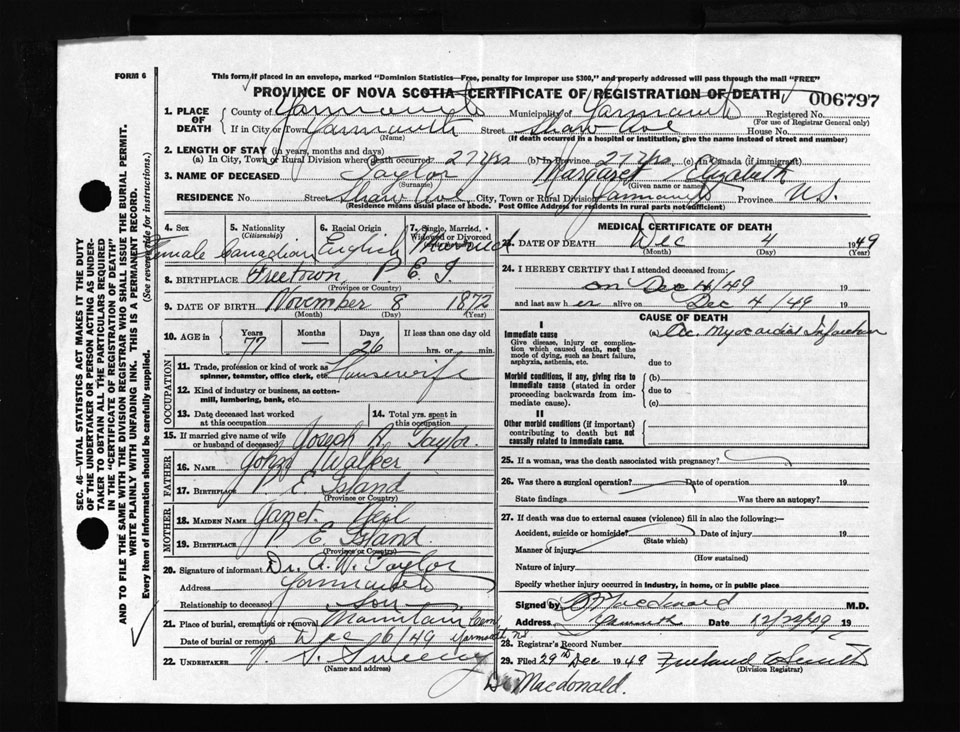 FORM 6
This form if placed in an envelope, marked "Dominion Statistics—Free, penalty for improper use $300," and properly addressed will pass through the mail "FREE"
PROVINCE OF NOVA SCOTIA—CERTIFICATE OF REGISTRATION OF DEATH
006797
1. PLACE OF DEATH
County of Yarmouth Municipality of Yarmouth Registered No.
(For use of Registrar General only)
If in City or Town Yarmouth Street Shaw Ave House No.
(If death occurred in a hospital or institution, give the name instead of street and number)
2. LENGTH OF STAY (in years, months and days)
(a) In City, Town or Rural Division where death occurred 27 yrs (b) In Province 27 yrs (c) In Canada (if immigrant)
3. NAME OF DECEASED Taylor Margaret Elizabeth
(Surname) (Given name or names)
RESIDENCE No. Street Shaw Ave City, Town or Rural Division Yarmouth Province N.S.
(Residence means usual place of abode. Post Office Address for residents in rural parts not sufficient)
4. Sex 5. Nationality (Citizenship) 6. Racial Origin 7. Single, Married, Widowed or Divorced
Female Canadian English Married
8. BIRTHPLACE Freetown, P. E. I.
(Province or Country)
9. DATE OF BIRTH November 8 1872
(Month) (Day) (Year)
10. AGE in Years Months Days If less than one day old
77 — 26 hrs. or min.
OCCUPATION
11. Trade, profession or kind of work as spinner, teamster, office clerk, etc. Housewife
12. Kind of industry or business, as cotton-mill, lumbering, bank, etc.
13. Date deceased last worked at this occupation
14. Total yrs. spent in this occupation
15. If married give name of wife or husband of deceased Joseph R. Taylor
FATHER
16. NAME John Walker
17. BIRTHPLACE P. E. Island
(Province or Country)
MOTHER
18. MAIDEN NAME Janet
19. BIRTHPLACE P. E. Island
(Province or Country)
20. Signature of informant Dr. A. W. Taylor
Address Yarmouth
Relationship to deceased Son
21. Place of burial, cremation or removal Mountain Cem Yarmouth N.S.
Date of burial or removal Dec 6/49
22. UNDERTAKER Sweeny
(Name and address)
MEDICAL CERTIFICATE OF DEATH
DATE OF DEATH Dec 4 1949
(Month) (Day) (Year)
24. I HEREBY CERTIFY that I attended deceased from:
on Dec 4/49 19
and last saw her alive on Dec 4/49 19
CAUSE OF DEATH
I
Immediate cause (a) Ac. Myocardial Infarction
Give disease, injury or complication which caused death, not the mode of dying, such as heart failure, asphyxia, asthenia, etc.
due to
Morbid conditions, if any, giving rise to immediate cause (stated in order proceeding backwards from immediate cause).
(b)
due to
(c)
II
Other morbid conditions (if important) contributing to death but not causally related to immediate cause.
25. If a woman, was the death associated with pregnancy?
26. Was there a surgical operation? Date of operation 19
State findings Was there an autopsy?
27. If death was due to external causes (violence) fill in also the following:—
Accident, suicide or homicide? Date of injury 19
(State which)
Manner of injury
(How sustained)
Nature of injury
Specify whether injury occurred in industry, in home, or in public place
Signed by Macdonald M.D.
Address Yarmouth Date 12/22/49 19
28. Registrar's Record Number
29. Filed 29th Dec 1949 Smith
(Division Registrar)
Macdonald.
SEC. 46—VITAL STATISTICS ACT MAKES IT THE DUTY OF THE UNDERTAKER OR PERSON ACTING AS UNDERTAKER TO OBTAIN ALL THE PARTICULARS REQUIRED IN THE "CERTIFICATE OF REGISTRATION OF DEATH"
AND TO FILE THE SAME WITH THE DIVISION REGISTRAR WHO SHALL ISSUE THE BURIAL PERMIT.
WRITE PLAINLY WITH UNFADING INK. THIS IS A PERMANENT RECORD.
Every item of information should be carefully supplied. (See reverse side for instructions.)